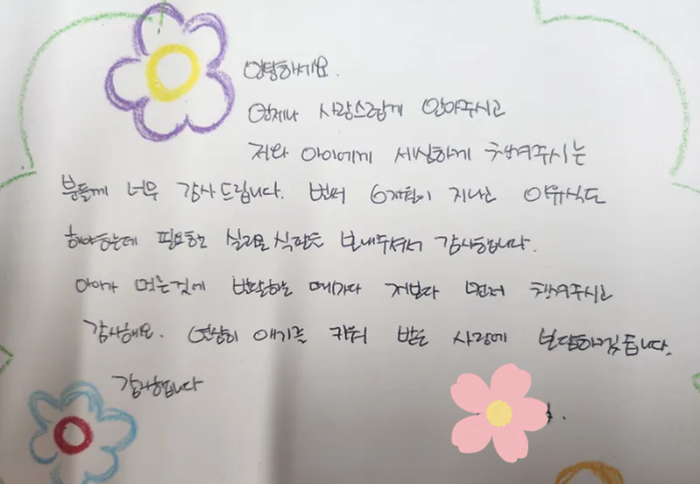 안녕하세요.
언제나 사랑스럽게 안아주시고
저와 아이에게 세심하게 챙겨주시는
분들께 너무 감사드립니다. 벌써 6개월이 지나고 이유식도
해야하는데 필요한 실리콘식판도 보내주셔서 감사합니다.
아이가 먹는것에 발달하는 때마다 저보다 먼저 챙겨주시고
감사해요. 열심히 애기를 키워 받은 사랑에 보답하겠습니다.
감사합니다